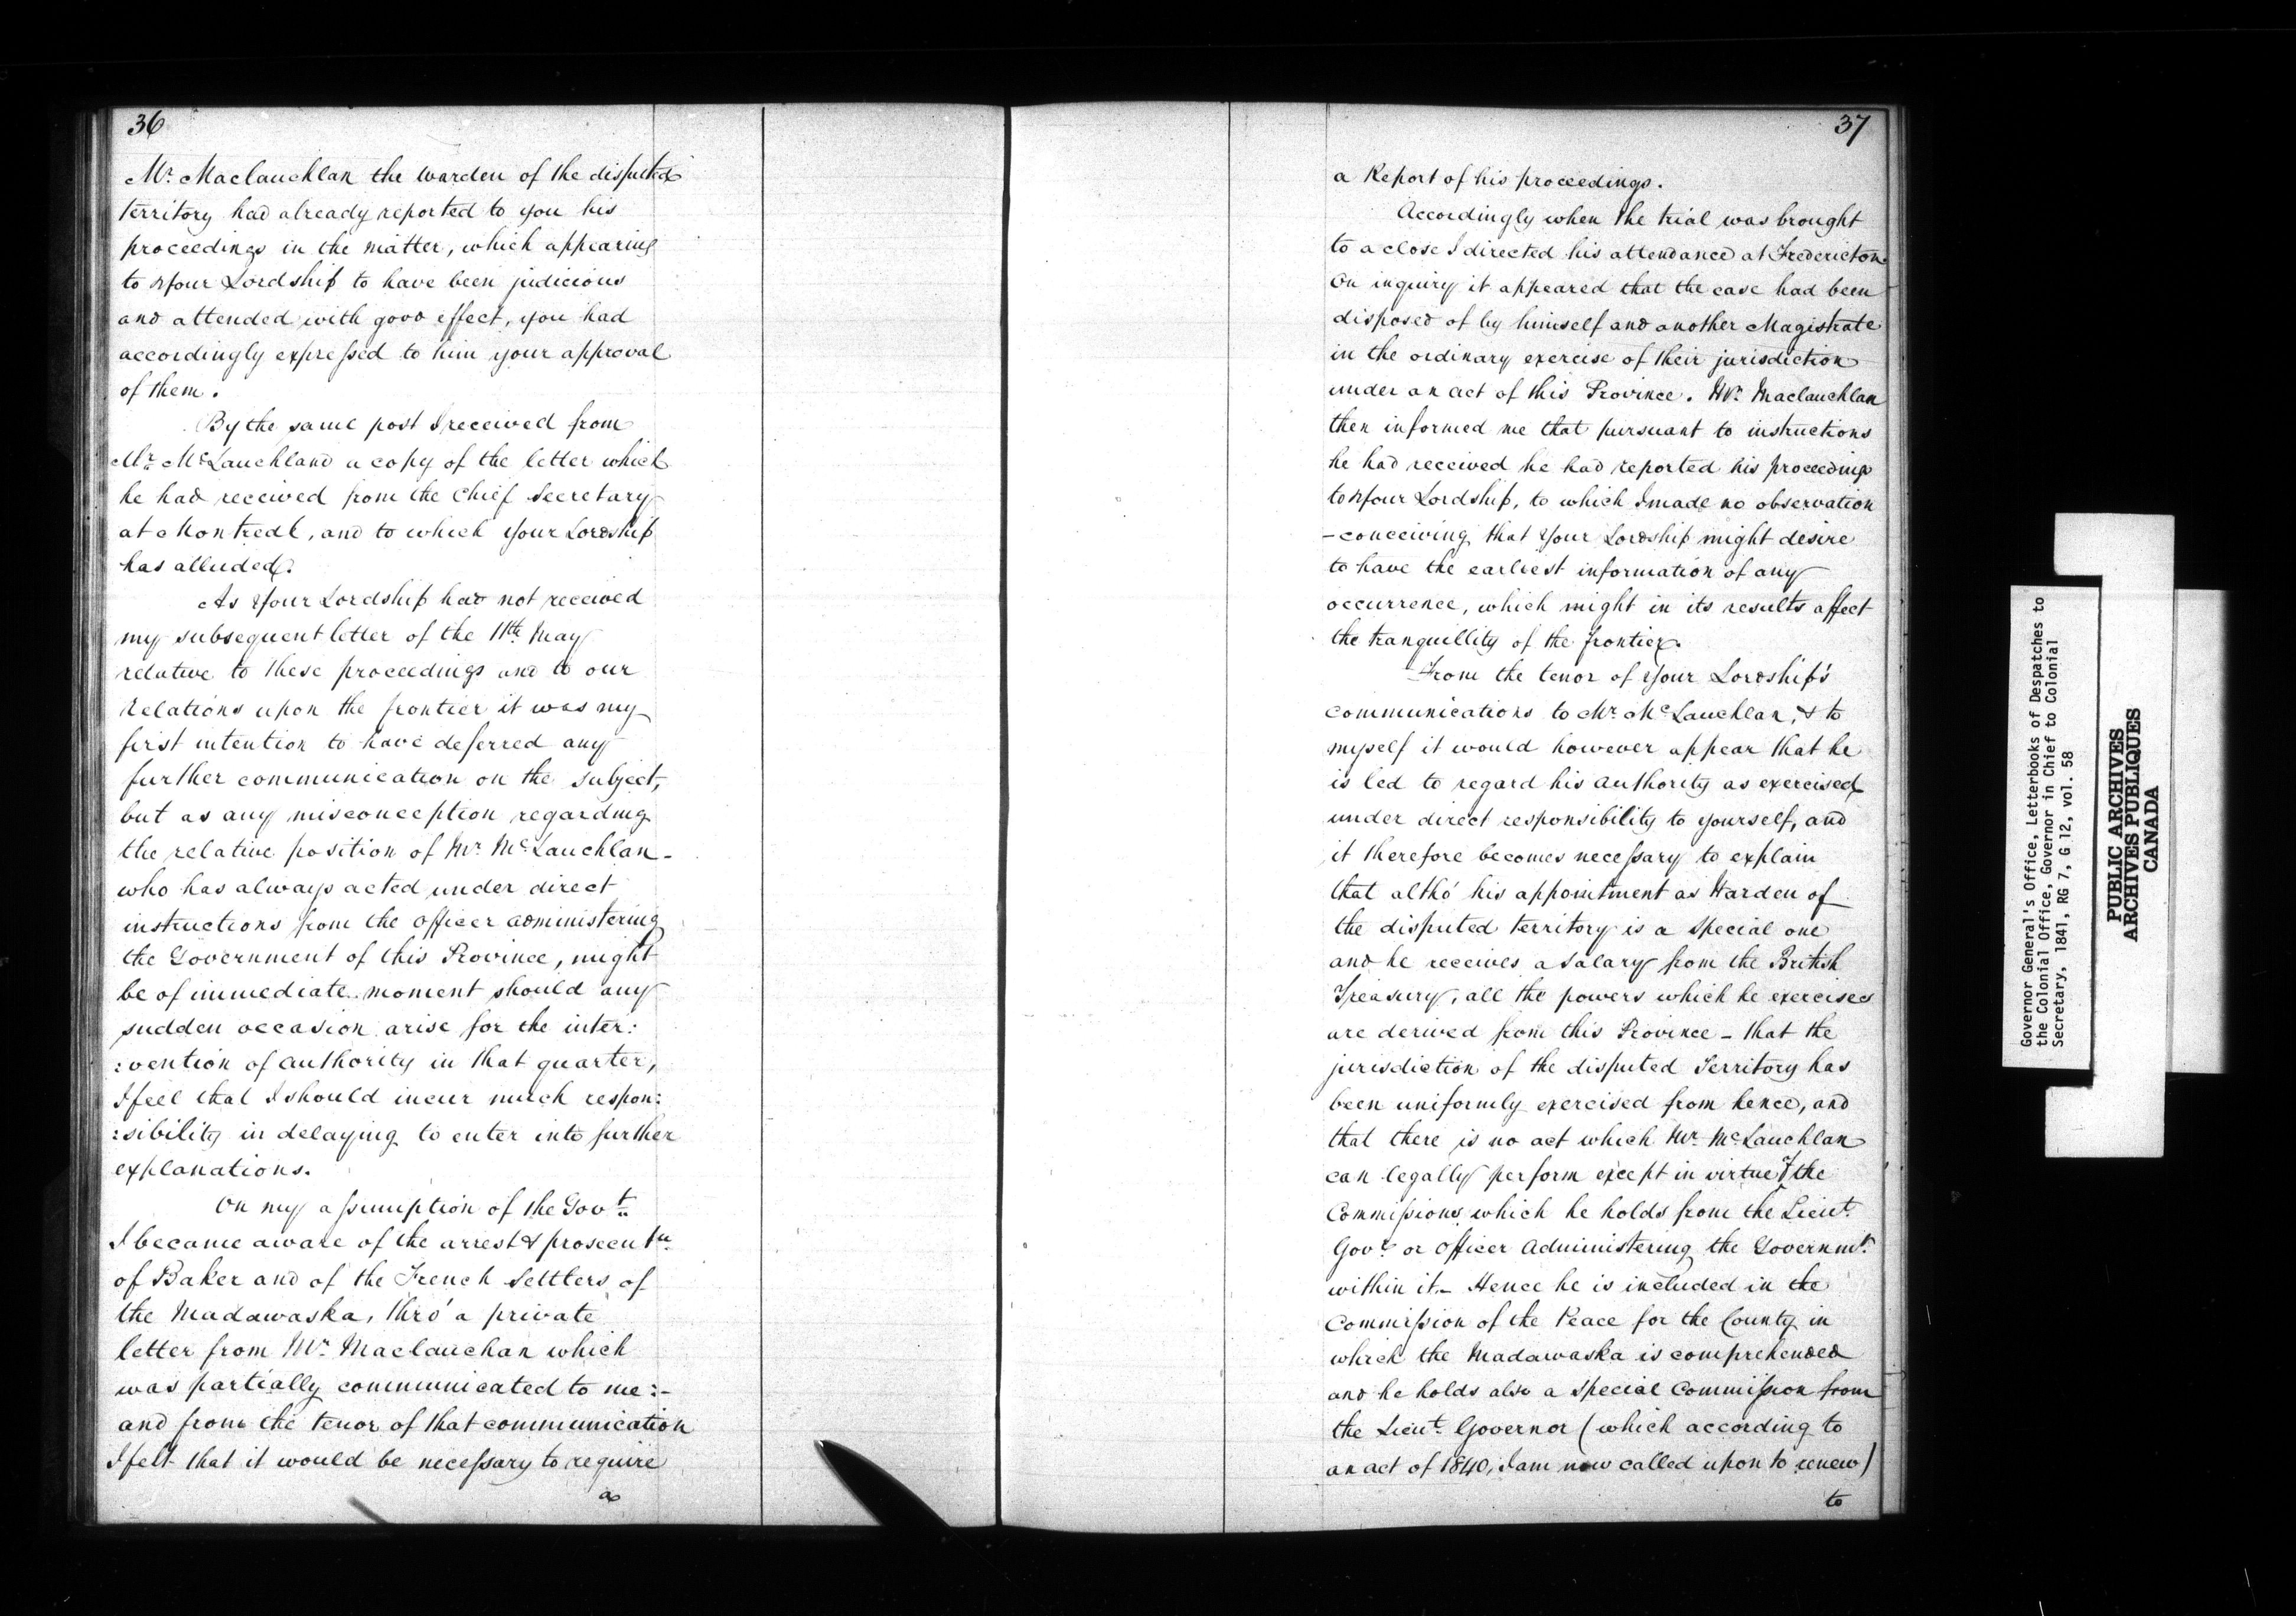 36
Mr. Maclauchlan the warden of the disputed
territory had already reported to you his
proceedings in the matter, which appearing
to Your Lordship to have been judicious
and attended with good effect, you had
accordingly expressed to him your approval
of them.
By the same post I received from
Mr. McLauchland a copy of the letter which
he had received from the Chief Secretary
at Montreal, and to which Your Lordship
has alluded.
As Your Lordship had not received
my subsequent letter of the 11th May
relative to these proceedings and to our
relations upon the frontier it was my
first intention to have deferred any
further communication on the subject,
but as any misconception regarding
the relative position of Mr. McLauchlan -
who has always acted under direct
instructions from the Officer administering
the Government of this Province, might
be of immediate moment should any
sudden occasion arise for the inter:
:vention of authority in that quarter,
I feel that I should incur much respon:
:sibility in delaying to enter into further
explanations.
On my assumption of the Govt.
I became aware of the arrest & prosecutn.
of Baker and of the French Settlers of
the Madawaska, thro' a private
letter from Mr. Maclauchan which
was partially communicated to me:-
and from the tenor of that communication
I felt that it would be necessary to require
a
37
a Report of his proceedings.
Accordingly when the trial was brought
to a close I directed his attendance at Fredericton.
On inquiry it appeared that the case had been
disposed of by himself and another Magistrate
in the ordinary exercise of their jurisdiction
under an act of this Province. Mr. Maclauchlan
then informed me that pursuant to instructions
he had received he had reported his proceedings
to Your Lordship, to which I made no observation
- conceiving that Your Lordship might desire
to have the earliest information of any
occurrence, which might in its results affect
the tranquillity of the frontier.
From the tenor of Your Lordship's
communications to Mr. McLauchlan, & to
myself it would however appear that he
is led to regard his authority as exercised
under direct responsibility to yourself, and
it therefore becomes necessary to explain
that altho' his appointment as Warden of
the disputed territory is a special one
and he receives a salary from the British
Treasury, all the powers which he exercises
are derived from this Province - that the
jurisdiction of the disputed Territory has
been uniformly exercised from hence, and
that there is no act which Mr. McLauchlan
can legally perform except in virtue of the
Commissions which he holds from the Lieut.
Govr. or Officer Administering the Governmt.
within it. - Hence he is included in the
Commission of the Peace for the County in
which the Madawaska is comprehended
and he holds also a special Commission from
the Lieut. Governor (which according to
an act of 1840, I am now called upon to renew)
to
Governor General's Office, Letterbooks of Despatches to
the Colonial Office, Governor in Chief to Colonial
Secretary, 1841, RG 7, G 12, vol. 58
PUBLIC ARCHIVES
ARCHIVES PUBLIQUES
CANADA